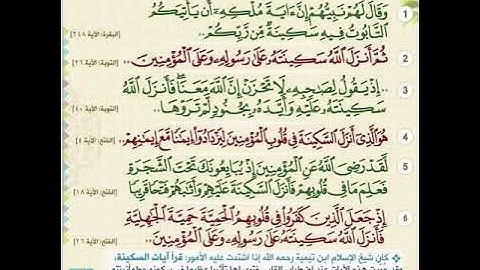 1
وَقَالَ لَهُمْ نَبِيُّهُمْ إِنَّ ءَايَةَ مُلْكِهِۦٓ أَن يَأْتِيَكُمُ
التَّابُوتُ فِيهِ سَكِينَةٌ مِّن رَّبِّكُمْ
البقرة: الآية ٢٤٨
2
ثُمَّ أَنزَلَ اللَّهُ سَكِينَتَهُۥ عَلَىٰ رَسُولِهِۦ وَعَلَى الْمُؤْمِنِينَ..
التوبة: الآية ٢٦
3
..إِذْ يَقُولُ لِصَاحِبِهِۦ لَا تَحْزَنْ إِنَّ اللَّهَ مَعَنَا ۖ فَأَنزَلَ اللَّهُ
سَكِينَتَهُۥ عَلَيْهِ وَأَيَّدَهُۥ بِجُنُودٍ لَّمْ تَرَوْهَا..
التوبة: الآية ٤٠
4
هُوَ الَّذِىٓ أَنزَلَ السَّكِينَةَ فِى قُلُوبِ الْمُؤْمِنِينَ لِيَزْدَادُوٓا إِيمَٰنًا مَّعَ إِيمَٰنِهِمْ..
الفتح: الآية ٤
5
لَقَدْ رَضِىَ اللَّهُ عَنِ الْمُؤْمِنِينَ إِذْ يُبَايِعُونَكَ تَحْتَ الشَّجَرَةِ
فَعَلِمَ مَا فِى قُلُوبِهِمْ فَأَنزَلَ السَّكِينَةَ عَلَيْهِمْ وَأَثَٰبَهُمْ فَتْحًا قَرِيبًا
الفتح: الآية ١٨
6
إِذْ جَعَلَ الَّذِينَ كَفَرُوا فِى قُلُوبِهِمُ الْحَمِيَّةَ حَمِيَّةَ الْجَٰهِلِيَّةِ
فَأَنزَلَ اللَّهُ سَكِينَتَهُۥ عَلَىٰ رَسُولِهِۦ وَعَلَى الْمُؤْمِنِينَ..
الفتح: الآية ٢٦
كان شيخ الإسلام ابن تيمية رحمه الله إذا اشتدت عليه الأمور: قرأ آيات السكينة،